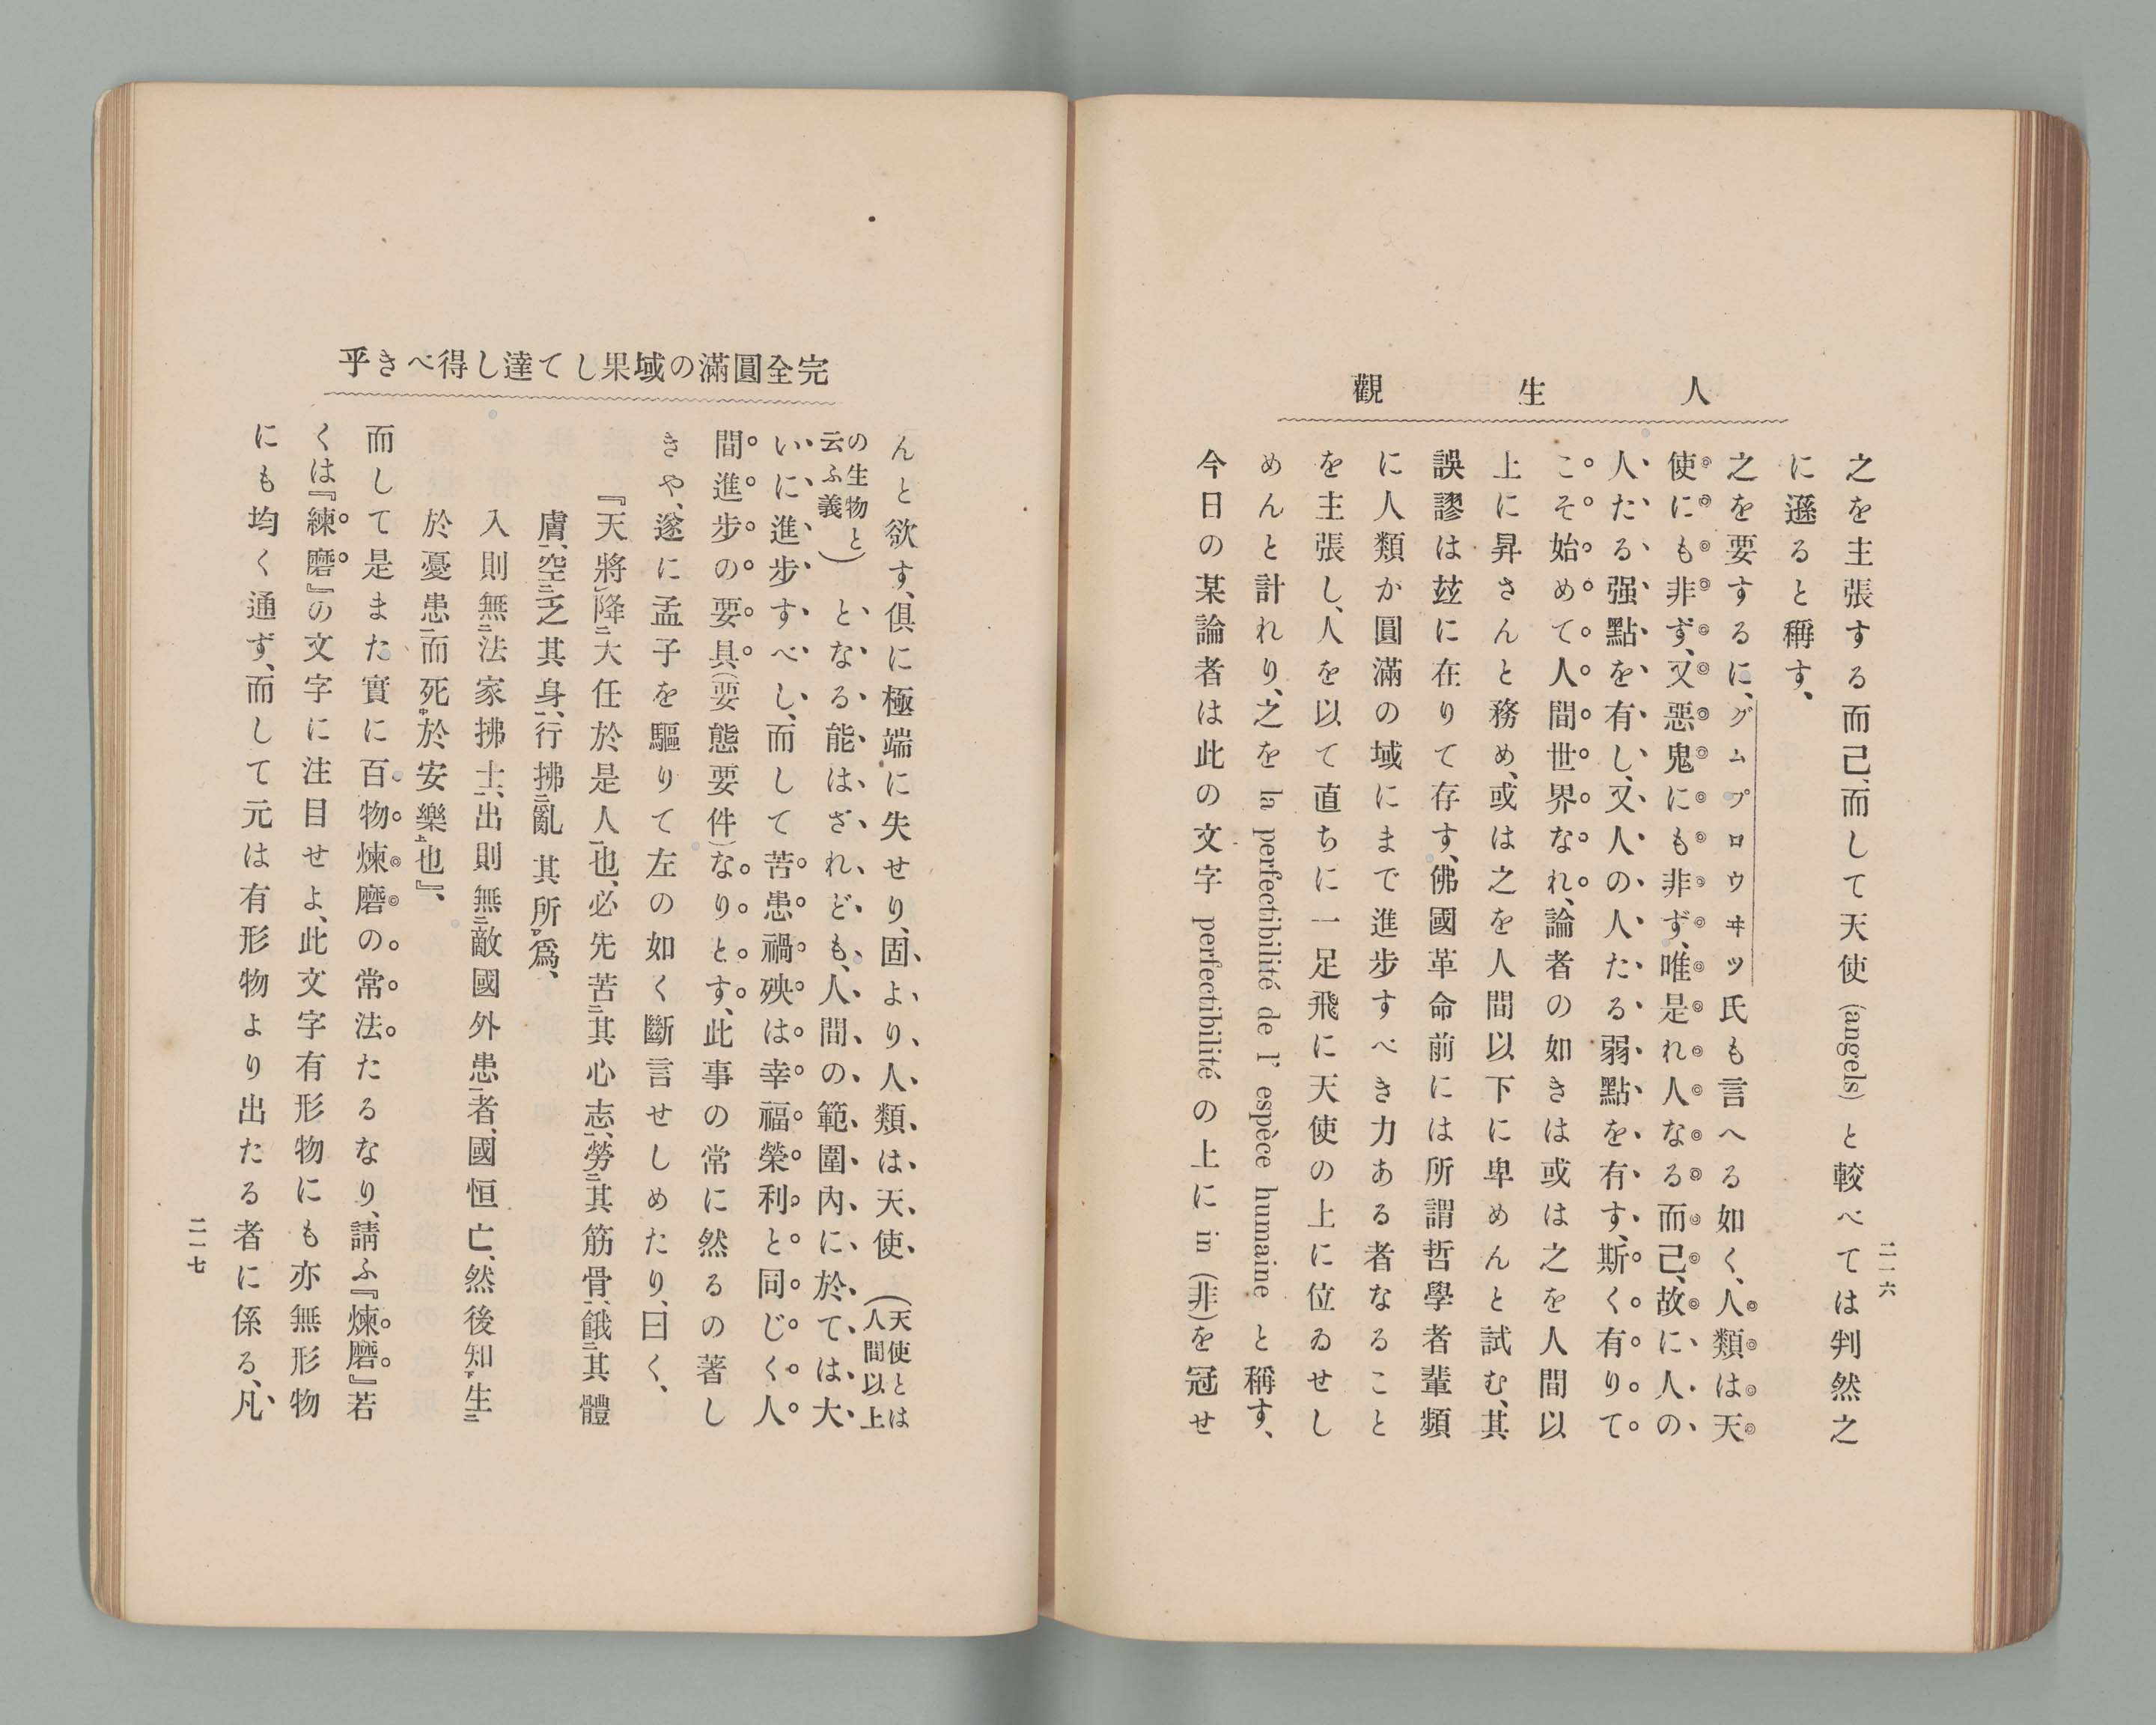 人生觀
二一六
之を主張する而己、而して天使 (angels) と較べては判然之
に遜ると稱す、
之を要するに、グムプロウヰツ氏も言へる如く、人類は天
使にも非ず、又惡鬼にも非ず、唯是れ人なる而己、故に人の
人たる强點を有し、又人の人たる弱點を有す、斯く有りて
こそ始めて人間世界なれ、論者の如きは或は之を人間以
上に昇さんと務め、或は之を人間以下に卑めんと試む、其
誤謬は玆に在りて存す、佛國革命前には所謂哲學者輩頻
に人類か圓滿の域にまで進步すべき力ある者なること
を主張し、人を以て直ちに一足飛に天使の上に位ゐせし
めんと計れり、之を la perfectibilité de l' espèce humaine と稱す、
今日の某論者は此の文字 perfectibilité の上に in (非)を冠せ
完全圓滿の域果して達し得べき乎
んと欲す、俱に極端に失せり、固より人類は天使(天使とは人間以上
の生物と云ふ義)となる能はざれども、人間の範圍內に於ては大
いに進步すべし、而して苦患禍殃は幸福榮利と同じく人
間進步の要具(要態要件)なりとす、此事の常に然るの著し
きや、遂に孟子を驅りて左の如く斷言せしめたり、曰く、
『天將降二大任於是人一也、必先苦二其心志一、勞二其筋骨一、餓二其體
膚一、空二乏其身一、行拂二亂其所爲、
入則無二法家拂士一、出則無二敵國外患一者、國恒亡、然後知下生二
於憂患一而死中於安樂上也』、
而して是また實に百物煉磨の常法たるなり、請ふ『煉磨』若
くは『練磨』の文字に注目せよ、此文字有形物にも亦無形物
にも均く通ず、而して元は有形物より出たる者に係る、凡
二一七